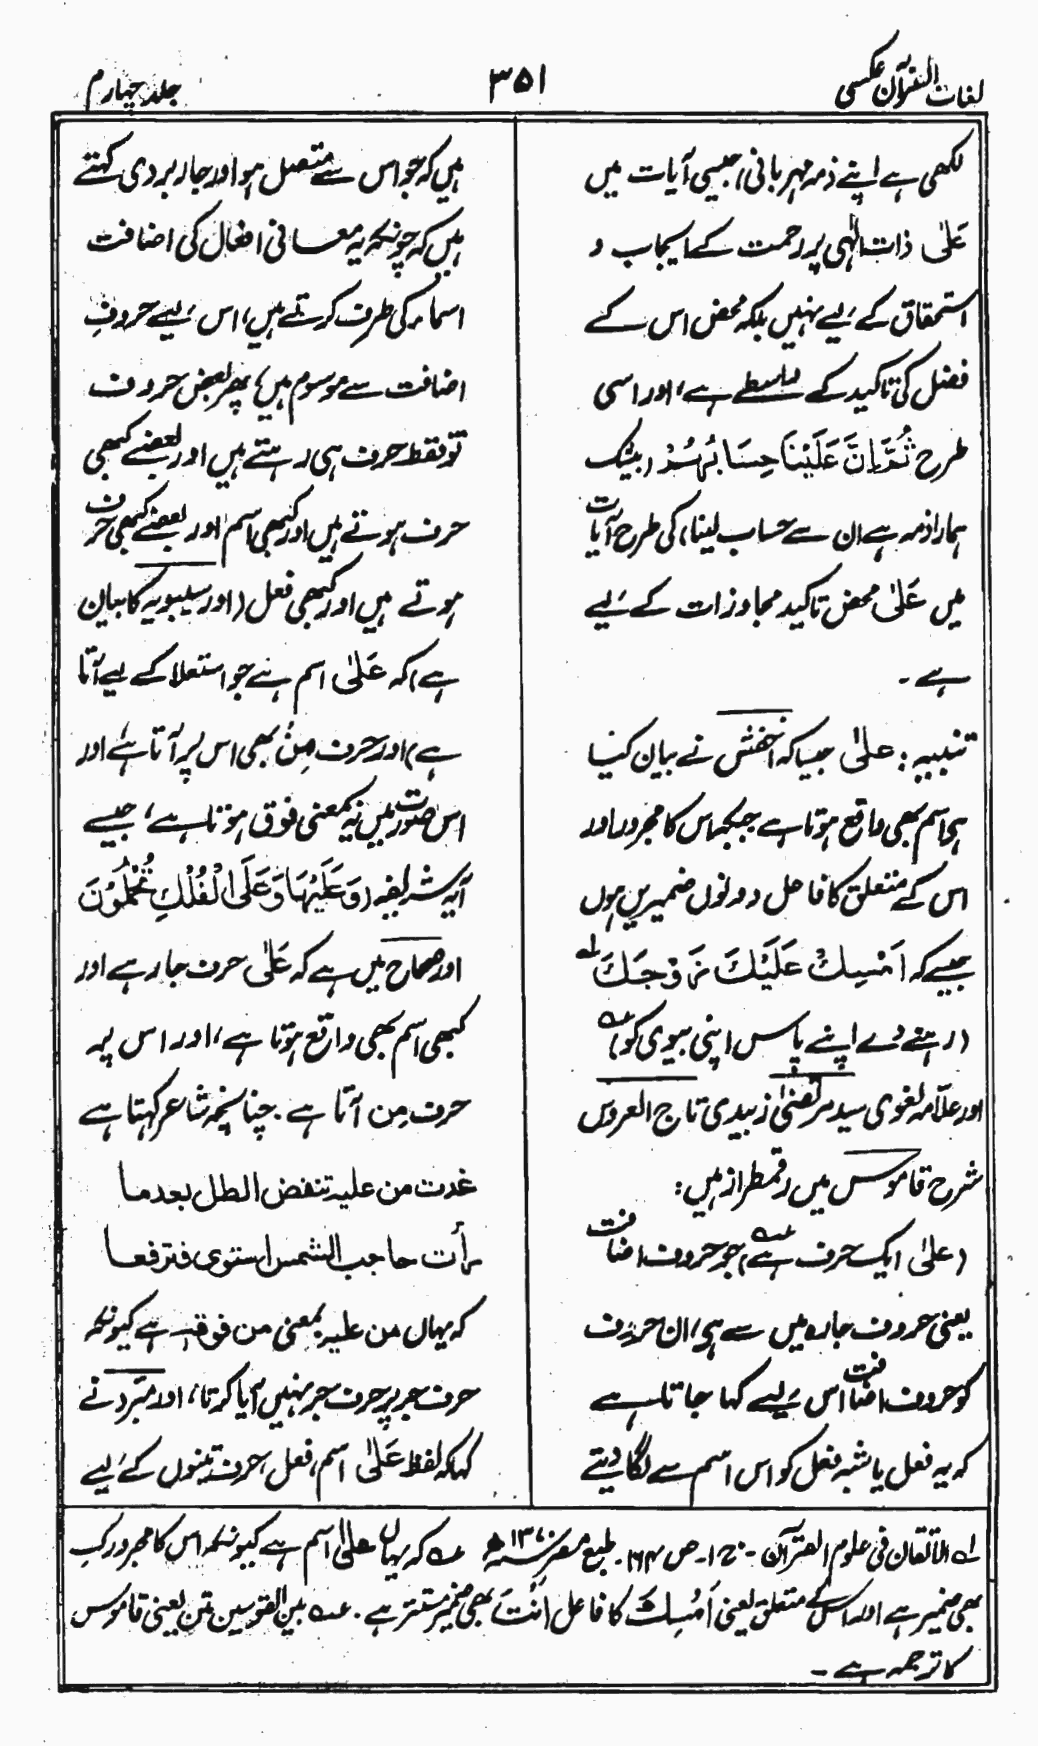 لغات القرآن عکسی
۳۵۱
جلد چہارم
لکھی ہے اپنے ذمہ مہربانی) جیسی آیات میں
عَلٰی ذات الٰہی پر رحمت کے ایجاب و
استحقاق کے لیے نہیں بلکہ محض اس کے
فضل کی تاکید کے واسطے ہے، اور اسی
طرح ثُمَّ اِنَّ عَلَیْنَا حِسَابَہُمْ (بیشک
ہمارا ذمہ ہے ان سے حساب لینا) کی طرح آیات
میں عَلٰی محض تاکید مجاوزات کے لیے
ہے ۔
تنبیہ : علیٰ جیسا کہ اخفش نے بیان کیا
ہی اسم بھی واقع ہوتا ہے جبکہ اس کا مجرور اور
اس کے متعلق کا فاعل دونوں ضمیریں ہوں
جیسے کہ اَمْسِكْ عَلَیْكَ زَوْجَكَ لہ
(رہنے دے اپنے پاس اپنی بیوی کو) عہ
اور علامہ لغوی سید مرتضیٰ زبیدی تاج العروس
شرح قاموس میں رقمطراز ہیں :
(علیٰ ایک حرف ہے) عہ جو حروف اضافت
یعنی حروف جارہ میں سے ہی، ان حروف
کو حروف اضافت اس لیے کہا جاتا ہے
کہ یہ فعل یا شبہ فعل کو اس اسم سے لگا دیتے
ہیں کہ جو اس سے متصل ہو اور جار بردی کہتے
ہیں کہ چونکہ یہ معانی افعال کی اضافت
اسماء کی طرف کرتے ہیں، اس لیے حروفِ
اضافت سے موسوم ہیں، پھر بعض حروف
تو فقط حرف ہی رہتے ہیں اور بعضے کبھی
حرف ہوتے ہیں اور کبھی اسم اور بعضے کبھی حرف
ہوتے ہیں اور کبھی فعل (اور سیبویہ کا بیان
ہے) کہ عَلٰی اسم ہے جو استعلا کے لیے آتا
ہے) اور حرف مِنْ بھی اس پر آتا ہے اور
اس صورت میں یہ بمعنی فوق ہوتا ہے، جیسے
آیہ شریفہ (وَعَلَیْہَا وَعَلَی الْفُلْكِ تُحْمَلُوْنَ
اور صحاح میں ہے کہ عَلٰی حرف جار ہے اور
کبھی اسم بھی واقع ہوتا ہے، اور اس پر
حرف مِن آتا ہے ۔ چنانچہ شاعر کہتا ہے
غدت من علیہ تنفض الطل بعدما
رأت حاجب الشمس استوی فترفعا
کہ یہاں من علیہ بمعنی من فوقہ ہے کیونکہ
حرف جر پر حرف جر نہیں آیا کرتا، اور مبرد نے
کہا کہ لفظ عَلٰی اسم، فعل، حرف تینوں کے لیے
لہ الاتقان فی علوم القرآن ۔ ج ۱ ۔ ص ۱۶۴ ۔ طبع مصر ۱۳۷۰ھ عہ کہ یہاں علیٰ اسم ہے کیونکہ اس کا مجرور کِ
بھی ضمیر ہے اور اس کے متعلق یعنی اَمْسِكْ کا فاعل اَنْتَ بھی ضمیر مستتر ہے ۔ عہ بین القوسین متن یعنی قاموس
کا ترجمہ ہے ۔